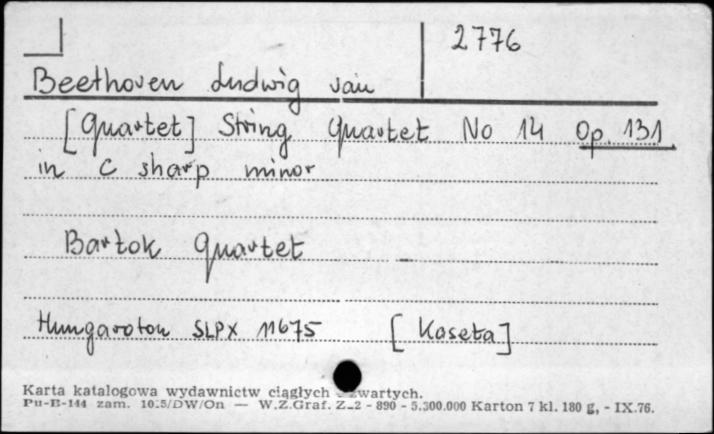 2776
Beethoven Ludwig van
[Quartet] String Quartet No 14 Op. 131
in c sharp minor
Bartok Quartet
Hungaroton SLPX 11675 [Kaseta]
Karta katalogowa wydawnictw ciągłych zwartych.
Pu-B-144 zam. /DW/On — W.Z.Graf. Z-2 - 890 - 5.300.000 Karton 7 kl. 180 g, - IX.76.